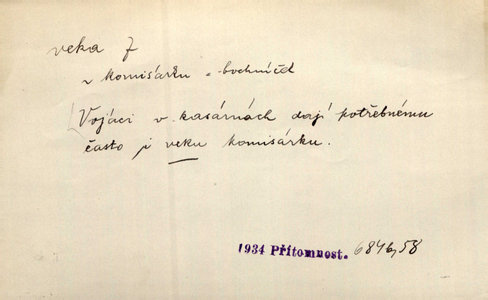 veka ž
v komisárku = bochníček
Vojáci v kasárnách dají potřebnému
často i veku komisárku.
1934 Přítomnost. 6846,58